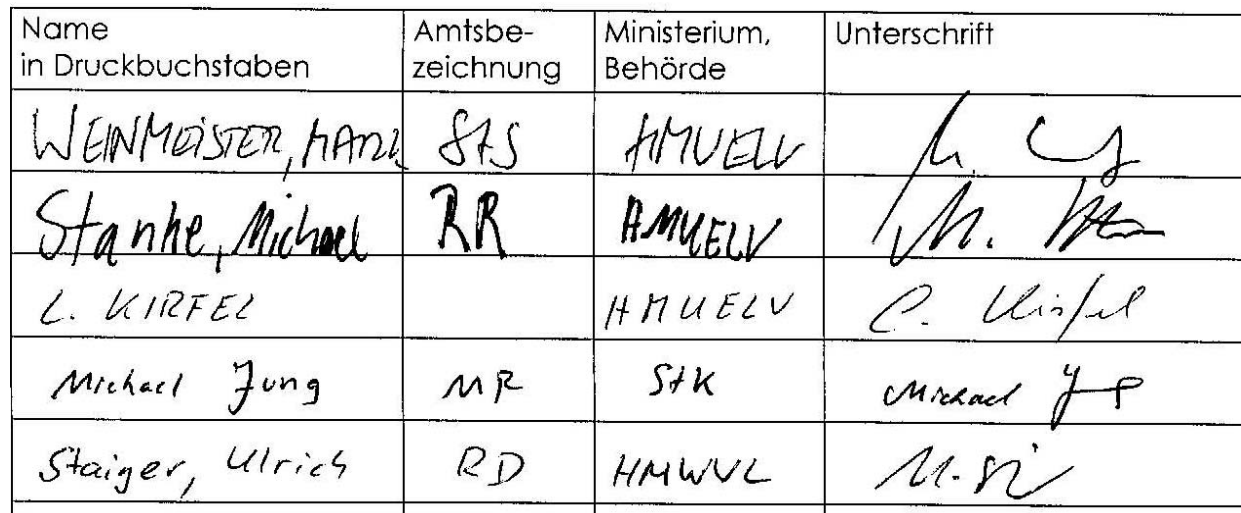 Name in Druckbuchstaben Amtsbe-zeichnung Ministerium, Behörde Unterschrift
WEINMEISTER, MARK StS HMUELV
Stanke, Michael RR HMUELV M.
L. KIRFEL HMUELV L. Kirfel
Michael Jung MR StK Michael
Staiger, Ulrich RD HMWVL U.